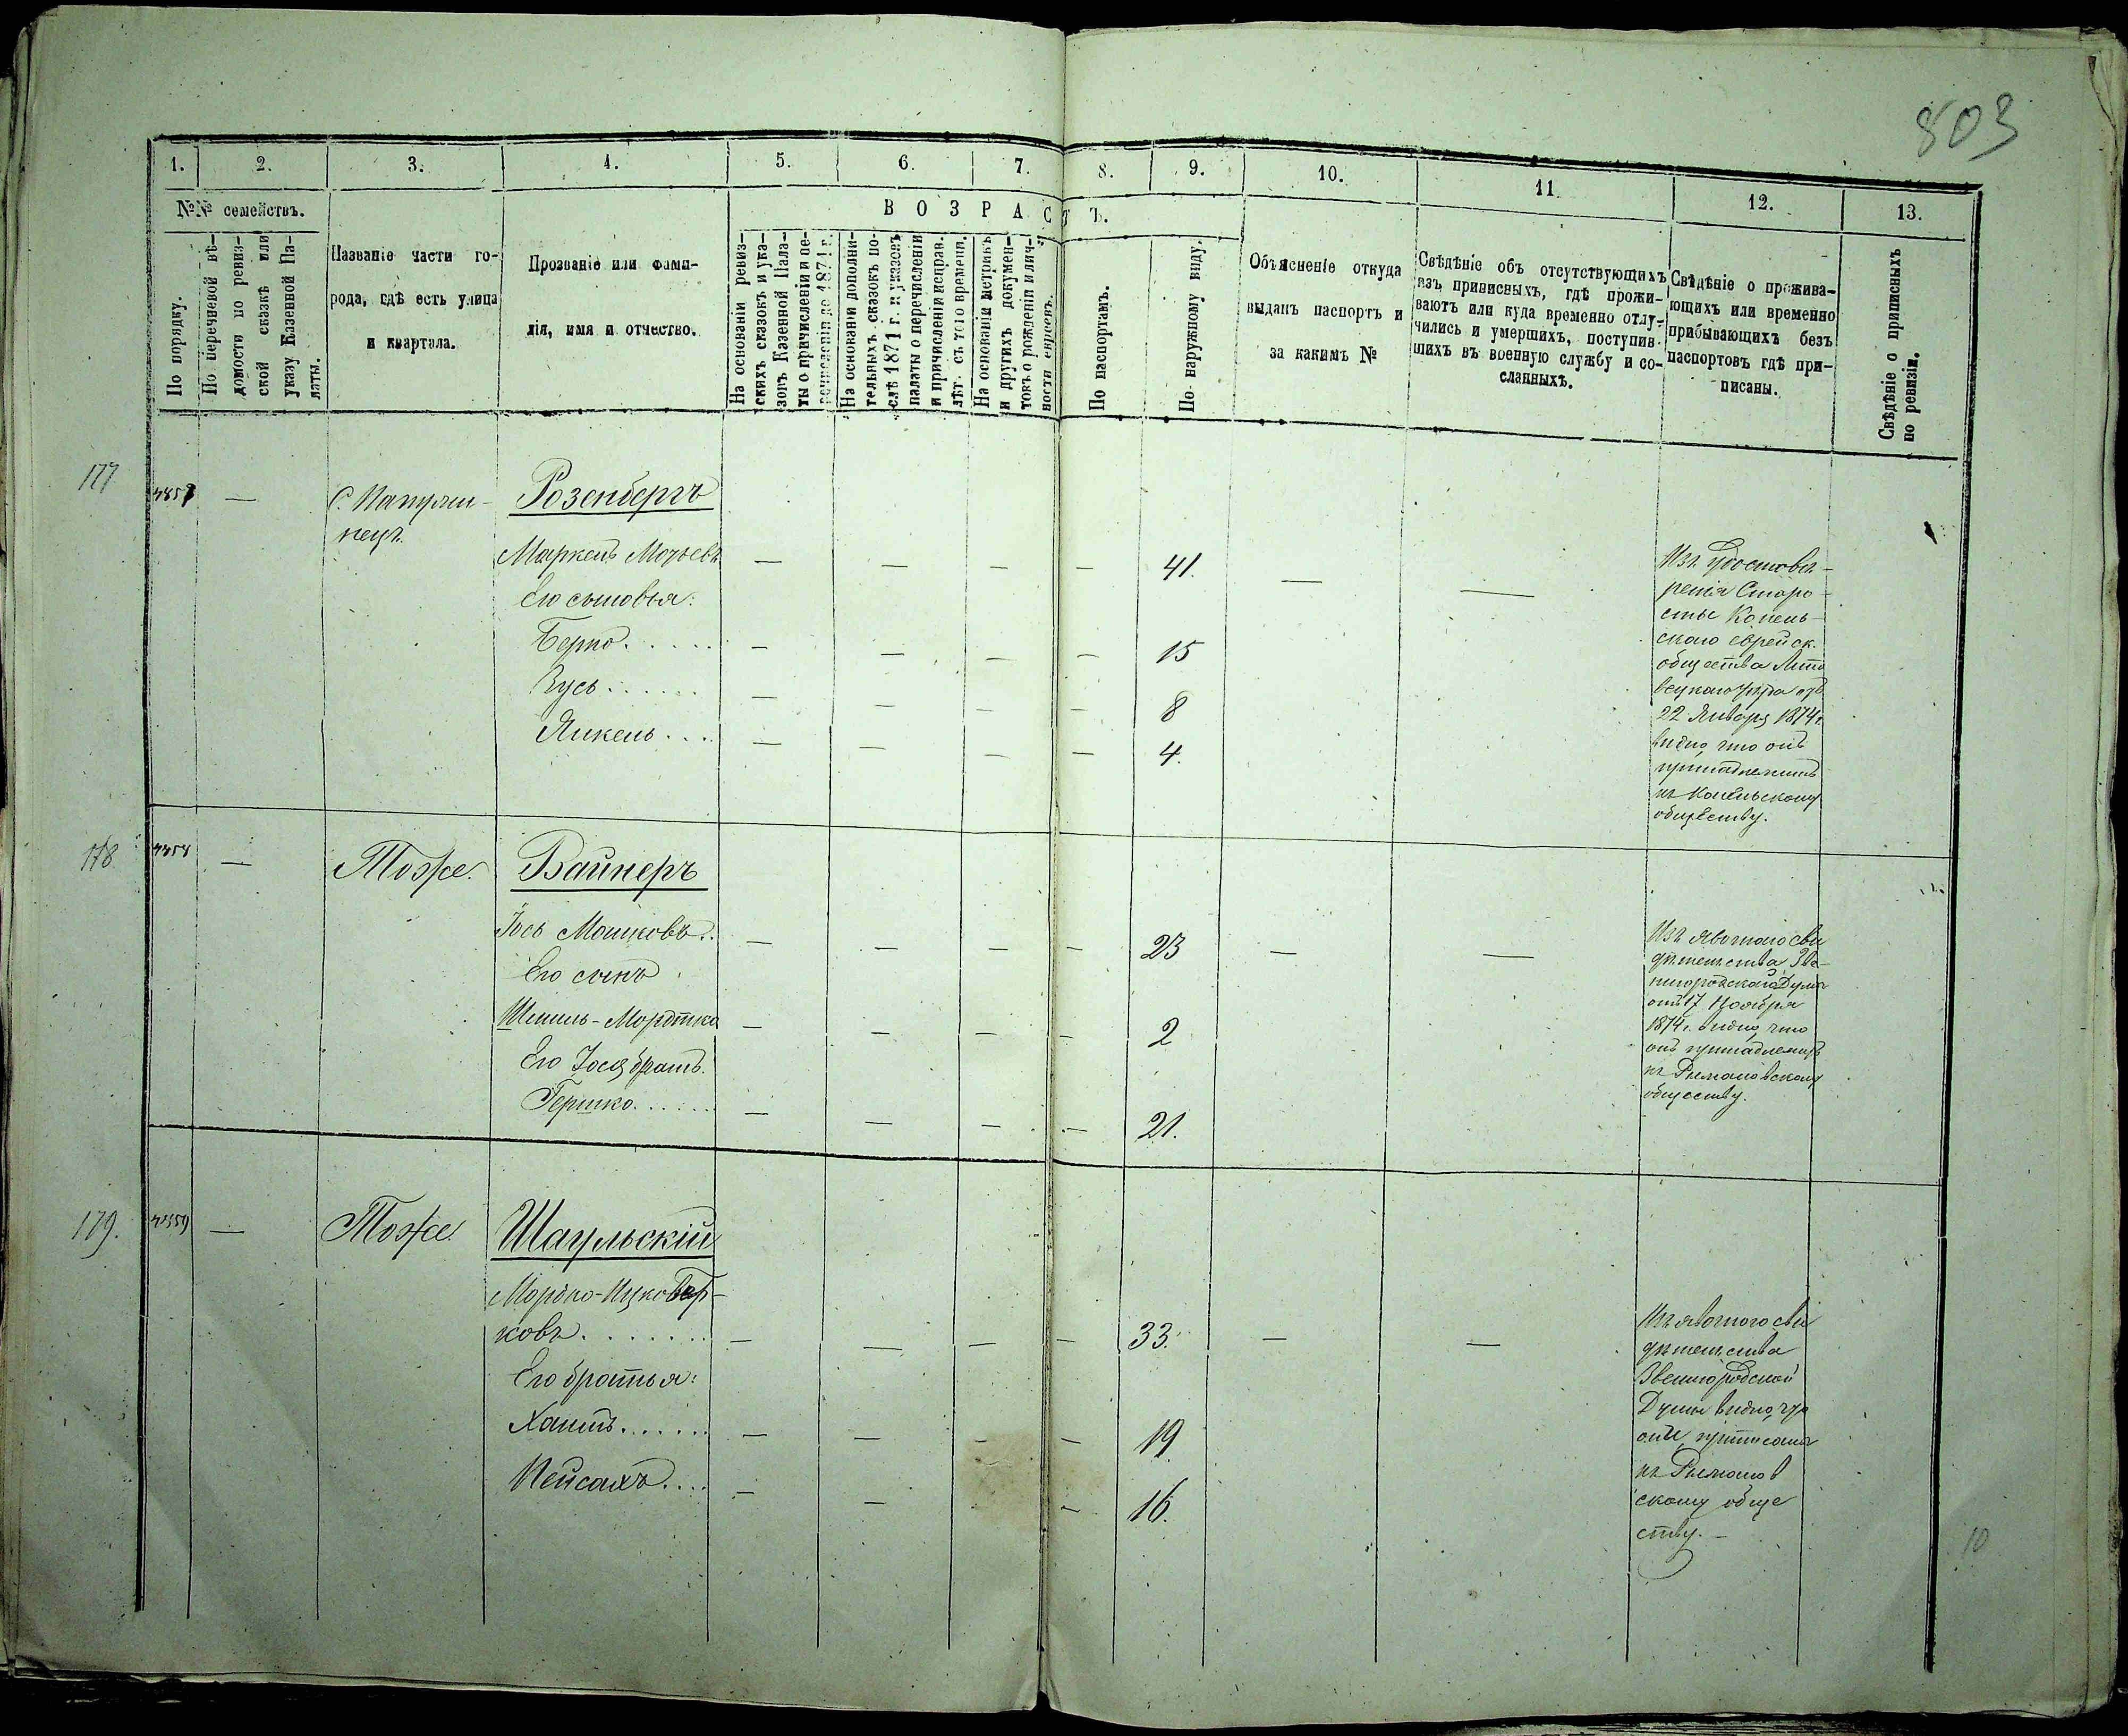 803
1. 2. 3. 4. 5. 6. 7. 8. 9. 10. 11 12. 13.
№№ семействъ.
По порядку.
По перечневой вѣ-
домости по ревиз-
ской сказкѣ или
указу Казенной Па-
латы.
Названіе части го-
рода, гдѣ есть улица
и квартала.
Прозваніе или фами-
лія, имя и отчество.
ВОЗРАСТЪ.
На основаніи ревиз-
скихъ сказокъ и ука-
зовъ Казенной Пала-
ты о причисленіи и пе-
речисленіи до 1874 г.
На основаніи дополни-
тельныхъ сказокъ по-
слѣ 1871 г. и указовъ
палаты о перечисленіи
и причисленіи исправ.
лѣт. съ того времени.
На основаніи метрикъ
и другихъ докумен-
товъ о рожденіи и лич-
ности евреевъ.
По паспортамъ.
По наружному виду.
Объясненіе откуда
выданъ паспортъ и
за какимъ №
Свѣдѣніе объ отсутствующихъ
изъ приписныхъ, гдѣ прожи-
ваютъ или куда временно отлу-
чились и умершихъ, поступив-
шихъ въ военную службу и со-
сланныхъ.
Свѣдѣніе о прожива-
ющихъ или временно
прибывающихъ безъ
паспортовъ гдѣ при-
писаны.
Свѣдѣніе о приписныхъ
по ревизіи.
177
— Розенбергъ
— — — — 41. — —
Его сыновья:
Берко — — — — 15
Зусь — — — — 8
Янкель — — — — 4.
Изъ удостовѣ-
ренія Старо-
сты Конель-
скаго еврейск.
общества
22 Января 1874 г.
видно, что онъ
принадлежитъ
къ Конельскому
обществу.
178
— Тоже. Вайнеръ
Іось Мошковъ — — — — 23 — —
Его сынъ
Шмиль-Мордтко — — — — 2
Его Іося братъ.
Гершко — — — — 21.
Изъ явочнаго сви
дѣтельства Зве-
нигородской Думы
отъ 17 Ноября
1874 г. видно, что
онъ принадлежитъ
къ
обществу.
179.
— Тоже Шаульскій
Мордко-Ицко Бер-
ковъ — — — — 33. — —
Его братья:
Хаимъ — — — — 19
Пейсахъ — — — 16.
Изъ явочного сви
дѣтельства
Звенигородской
Думы видно, что
они приписаны
къ
скому обще
ству. —
10